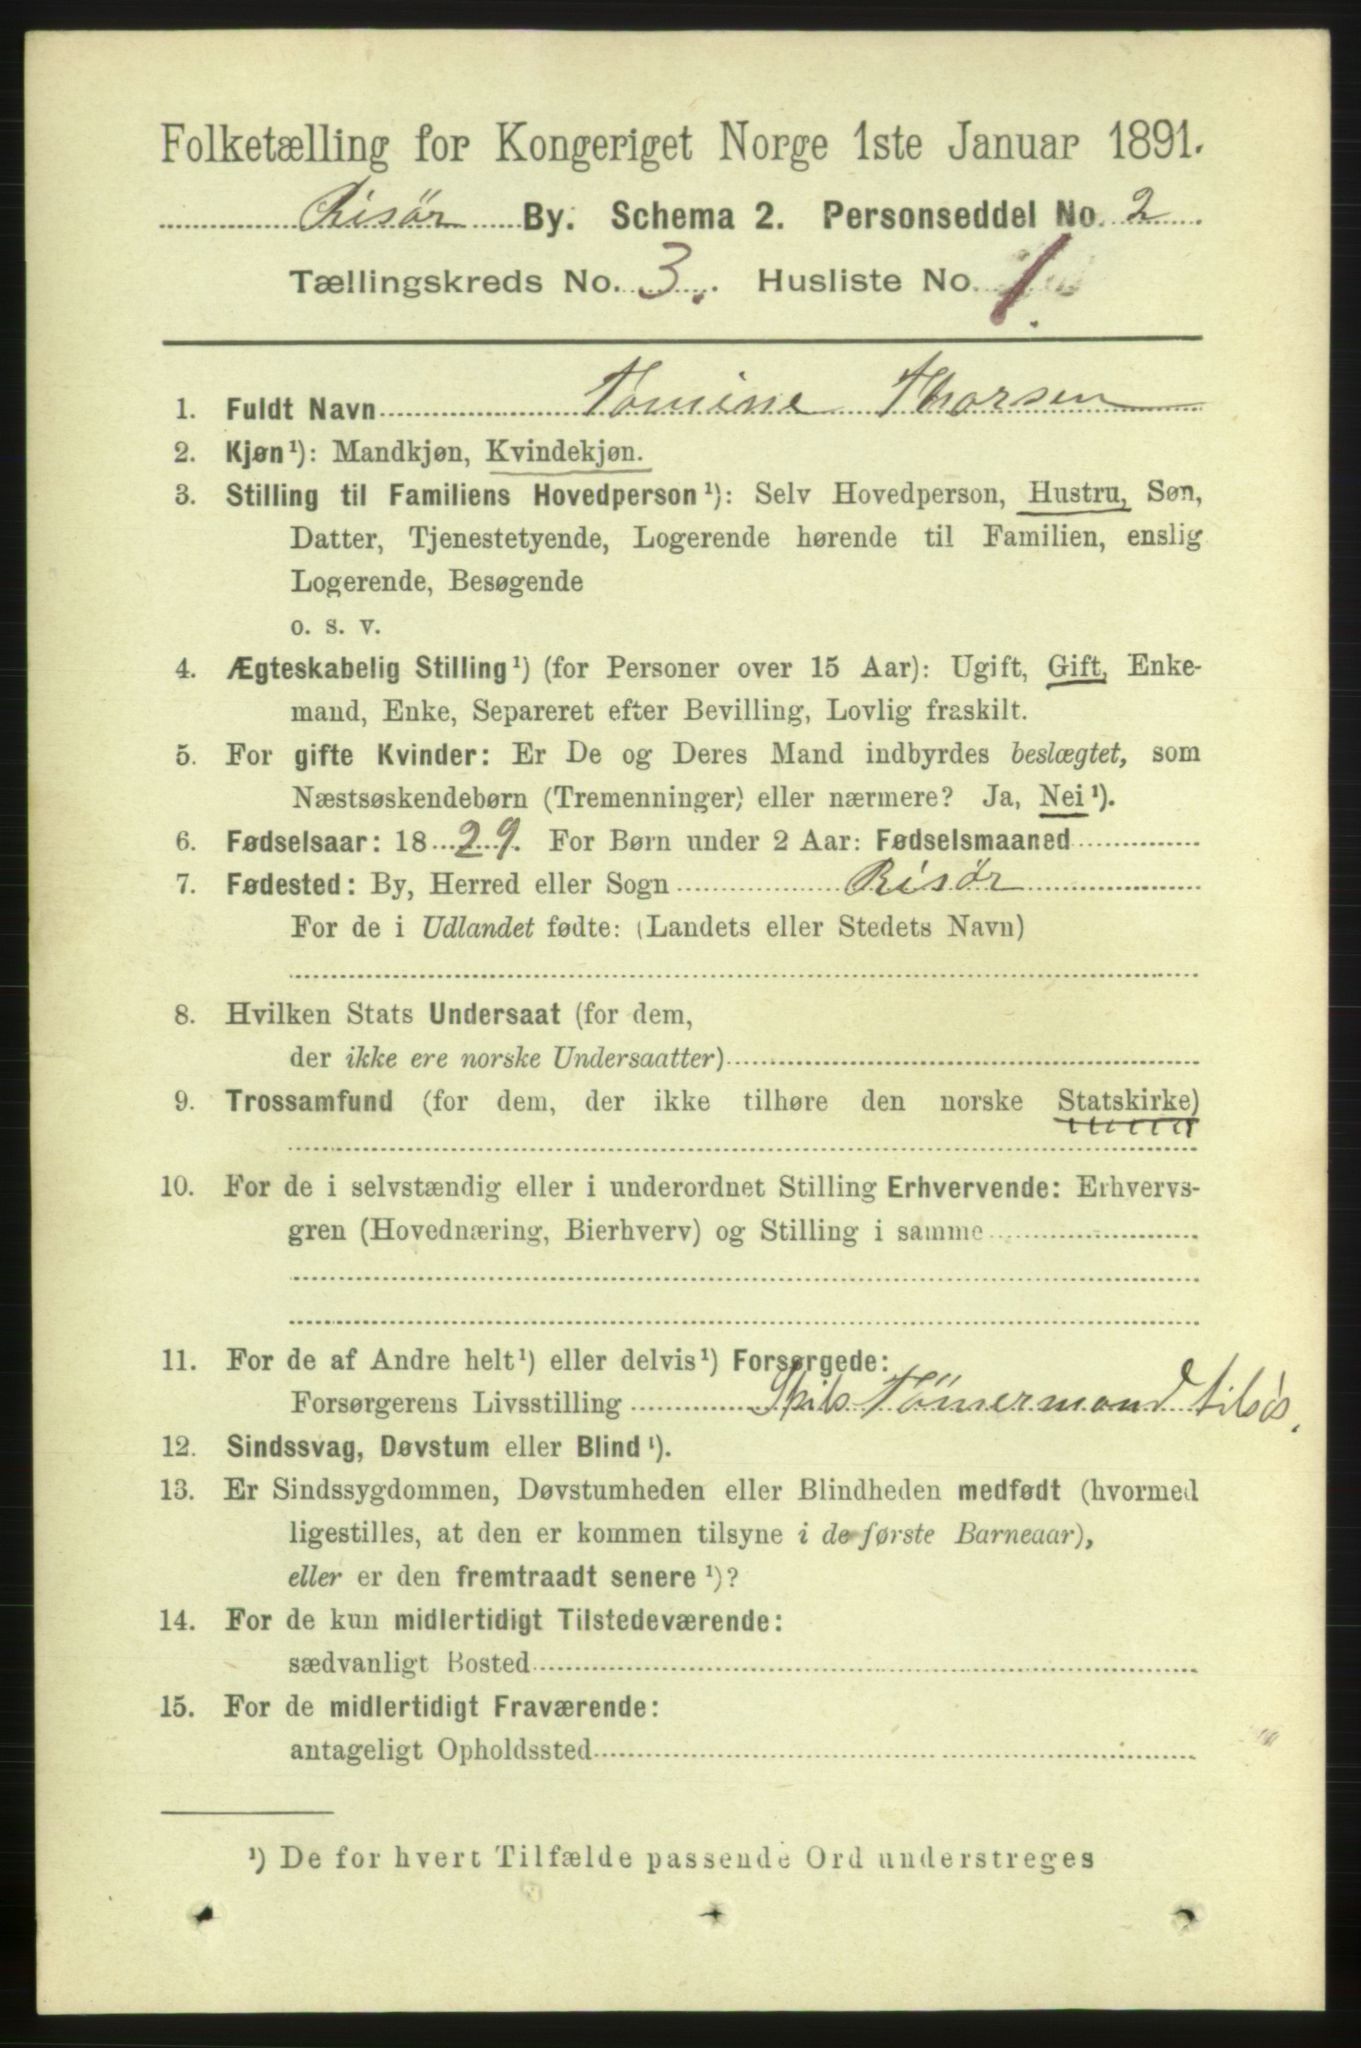 Folketælling for Kongeriget Norge 1ste Januar 1891.
Risör By. Schema 2. Personseddel No. 2
Tællingskreds No. 3. Husliste No. 1.
1. Fuldt Navn Tomine Thorsen
2. Kjøn¹): Mandkjøn, Kvindekjøn.
3. Stilling til Familiens Hovedperson¹): Selv Hovedperson, Hustru, Søn,
Datter, Tjenestetyende, Logerende hørende til Familien, enslig
Logerende, Besøgende
o. s. v.
4. Ægteskabelig Stilling¹) (for Personer over 15 Aar): Ugift, Gift, Enke-
mand, Enke, Separeret efter Bevilling, Lovlig fraskilt.
5. For gifte Kvinder: Er De og Deres Mand indbyrdes beslægtet, som
Næstsøskendebørn (Tremenninger) eller nærmere? Ja, Nei¹).
6. Fødselsaar: 1829. For Børn under 2 Aar: Fødselsmaaned
7. Fødested: By, Herred eller Sogn Risör
For de i Udlandet fødte: (Landets eller Stedets Navn)
8. Hvilken Stats Undersaat (for dem,
der ikke ere norske Undersaatter)
9. Trossamfund (for dem, der ikke tilhøre den norske Statskirke)
10. For de i selvstændig eller i underordnet Stilling Erhvervende: Erhvervs-
gren (Hovednæring, Bierhverv) og Stilling i samme
11. For de af Andre helt¹) eller delvis¹) Forsørgede:
Forsørgerens Livsstilling Skibs Tömermand tilsös.
12. Sindssvag, Døvstum eller Blind¹).
13. Er Sindssygdommen, Døvstumheden eller Blindheden medfødt (hvormed
ligestilles, at den er kommen tilsyne i de første Barneaar),
eller er den fremtraadt senere¹)?
14. For de kun midlertidigt Tilstedeværende:
sædvanligt Bosted
15. For de midlertidigt Fraværende:
antageligt Opholdssted
¹) De for hvert Tilfælde passende Ord understreges